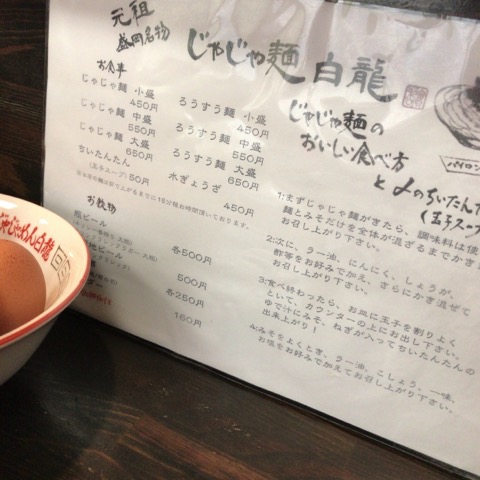 元祖
盛岡名物
じゃじゃ麺 白龍
お食事
じゃじゃ麺 小盛
450円
じゃじゃ麺 中盛
550円
じゃじゃ麺 大盛
650円
ちいたんたん
(玉子スープ) 50円
ろうすう麺 小盛
450円
ろうすう麺 中盛
550円
ろうすう麺 大盛
650円
水ぎょうざ
450円
お飲物
瓶ビール
各500円
地ビール
500円
各250円
160円
じゃじゃ麺の
おいしい食べ方
と〆のちいたんた
(玉子スープ
パイロン
1:まずじゃじゃ麺がきたら、調味料は使
麺とみそだけを全体が混ざるまでかき
お召し上がり下さい。
2:次に、ラー油、にんにく、しょうが、
酢等をお好みで加え、さらにかき混ぜて
お召し上がり下さい。
3:食べ終わったら、お皿に玉子を割りよく
といて、カウンターの上にお出し下さい。
ゆで汁にみそ、ねぎが入ってちいたんたんの
出来上がり!
4:みそをよくとき、ラー油、こしょう、一味、
お塩をお好みで加えてお召し上がり下さい。
じゃじゃめん白龍